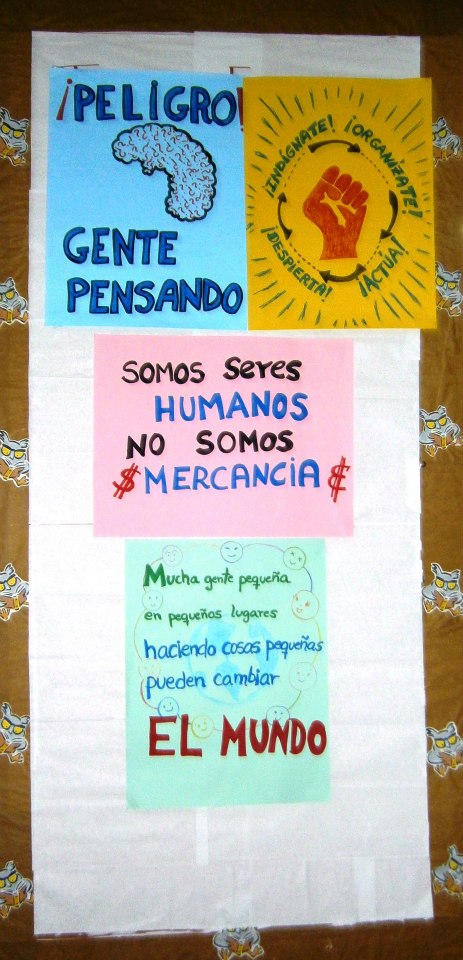 ¡PELIGRO!
GENTE
PENSANDO
¡INDÍGNATE! ¡ORGANÍZATE!
¡DESPIERTA! ¡ACTUA!
SOMOS seres
HUMANOS
NO SOMOS
$ MERCANCIA €
Mucha gente pequeña
en pequeños lugares
haciendo cosas pequeñas
pueden cambiar
EL MUNDO